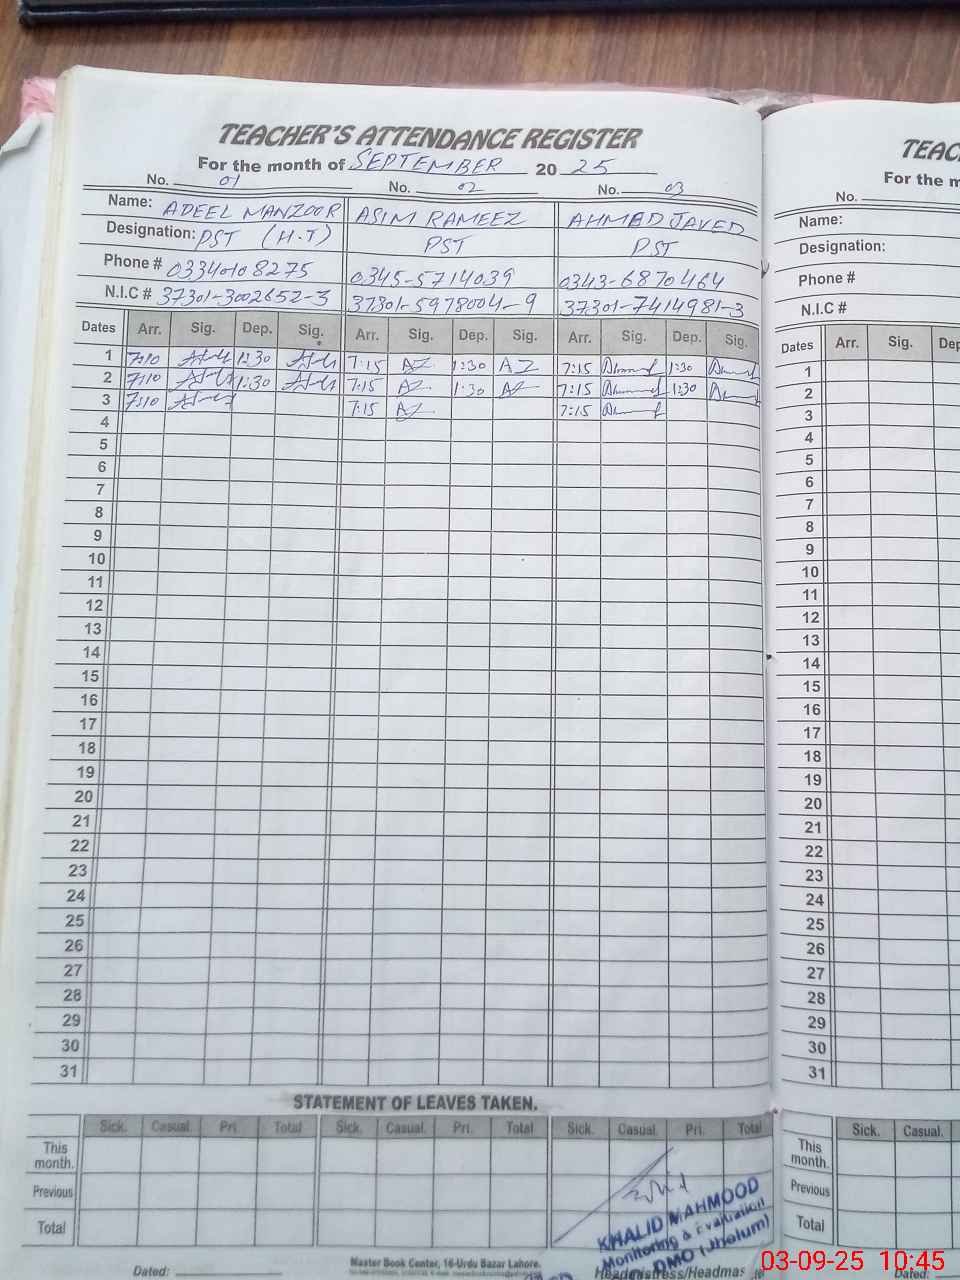 TEACHER'S ATTENDANCE REGISTER
For the month of SEPTEMBER 2025
No. 01 No. 02 No. 03
Name: ADEEL MANZOOR ASIM RAMEEZ AHMAD JAVED
Designation: PST (H.T) PST PST
Phone # 03340108275 0345-5714039 0343-6870464
N.I.C # 37301-3002652-3 37301-5978004-9 37301-7414981-3
Dates Arr. Sig. Dep. Sig. Arr. Sig. Dep. Sig. Arr. Sig. Dep. Sig.
1 7:10 1:30 7:15 AZ 1:30 AZ 7:15 1:30
2 7:10 1:30 7:15 AZ 1:30 AZ 7:15 1:30
3 7:10 7:15 AZ 7:15
4
5
6
7
8
9
10
11
12
13
14
15
16
17
18
19
20
21
22
23
24
25
26
27
28
29
30
31
STATEMENT OF LEAVES TAKEN.
Sick. Casual. Pri. Total Sick. Casual. Pri. Total Sick. Casual. Pri. Total
This month.
Previous
Total
KHALID MAHMOOD
Monitoring & Evaluation
DMO (Jhelum)
Master Book Center, 16-Urdu Bazar Lahore.
Dated:
Headmistress/Headmas
TEAC
For the m
No.
Name:
Designation:
Phone #
N.I.C #
Dates Arr. Sig. Dep
1
2
3
4
5
6
7
8
9
10
11
12
13
14
15
16
17
18
19
20
21
22
23
24
25
26
27
28
29
30
31
Sick. Casual.
This month.
Previous
Total
Dated:
03-09-25 10:45